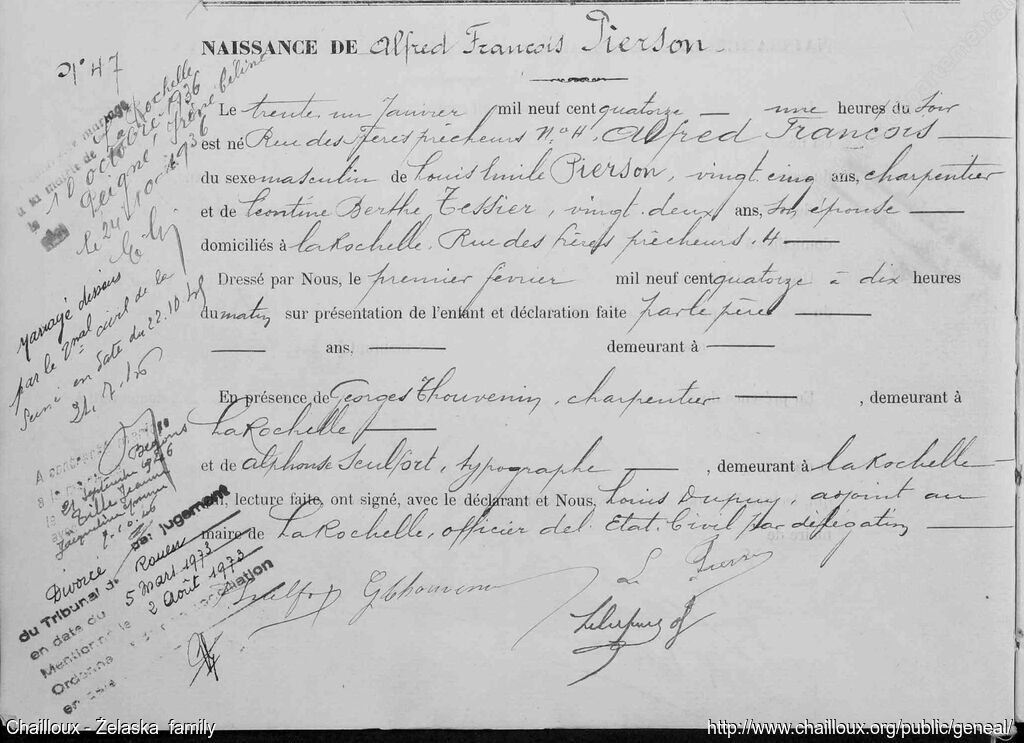 NAISSANCE DE Alfred François Pierson
N° 47
Le trente un Janvier mil neuf cent quatorze — une heures du Soir
est né Rue des Frères prêcheurs No 4, Alfred François —
du sexe masculin de Louis Emile Pierson, vingt cinq ans, charpentier
et de Leontine Berthe Tessier, vingt deux ans, son épouse —
domiciliés à La Rochelle, Rue des frères prêcheurs, 4 —
Dressé par Nous, le premier février mil neuf cent quatorze à dix heures
du matin sur présentation de l'enfant et déclaration faite par le père —
— ans, — demeurant à —
En présence de Georges Thouvenin, charpentier — , demeurant à
La Rochelle —
et de Alphonse Sculfort, typographe — , demeurant à La Rochelle
lecture faite, ont signé, avec le déclarant et Nous, Louis Dupuy, adjoint au
maire de La Rochelle, officier de l'Etat Civil par délégation —
mariage
à la mairie de La Rochelle
le 10 octobre 1936
le 24 10 1936
Mariage dissous
par le Tnal civil de la
Seine en date du 22.10.
A contracté
septembre 1946
Divorcé par jugement
du Tribunal de Rouen
en date du 5 Mars 1973
Mentionné le 2 Août 1973
Sculfort GThouvenin L Pierson
Chailloux - Żelaska family
http://www.chailloux.org/public/geneal/